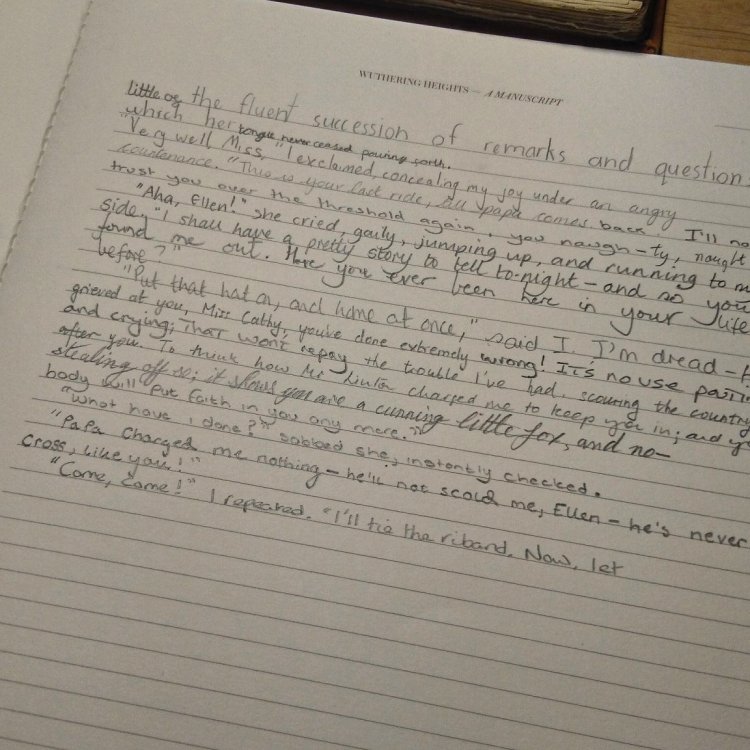 WUTHERING HEIGHTS — A MANUSCRIPT
little of the fluent succession of remarks and question
which her tongue never ceased pouring forth.
"Very well Miss," I exclaimed, concealing my joy under an angry
countenance. "This is your last ride, till papa comes back. I'll no
trust you over the threshold again, you naugh-ty, naught
"Aha, Ellen!" she cried, gaily, jumping up, and running to m
side, "I shall have a pretty story to tell to-night – and so you
found me out. Have you ever been here in your life
before?"
"Put that hat on, and home at once," said I. I'm dread-f
grieved at you, Miss Cathy, you've done extremely wrong! It's no use pouti
and crying; That won't repay the trouble I've had, scouring the country
after you. To think how Mr Linton charged me to keep you in; and y
stealing off so; it shows you are a cunning little fox, and no-
body will put faith in you any more."
"What have I done?" sobbed she, instantly checked.
"Papa charged me nothing – he'll not scold me, Ellen – he's never
cross, like you!"
"Come, come!" I repeated. "I'll tie the riband. Now, let